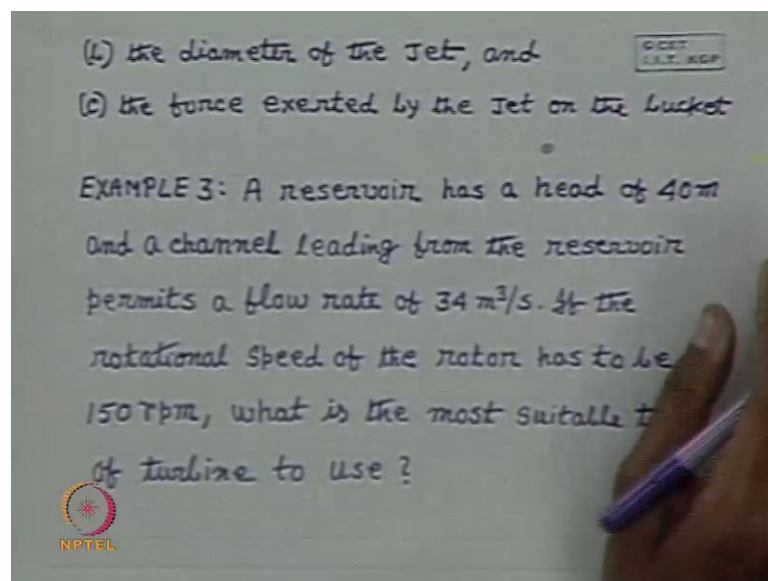 (b) the diameter of the Jet, and
C CET
I.I.T. KGP
(c) the force exerted by the Jet on the bucket
EXAMPLE 3: A reservoir has a head of 40m
and a channel leading from the reservoir
permits a flow rate of 34 m³/s. If the
rotational speed of the rotor has to be
150 rpm, what is the most suitable t
of turbine to use?
NPTEL